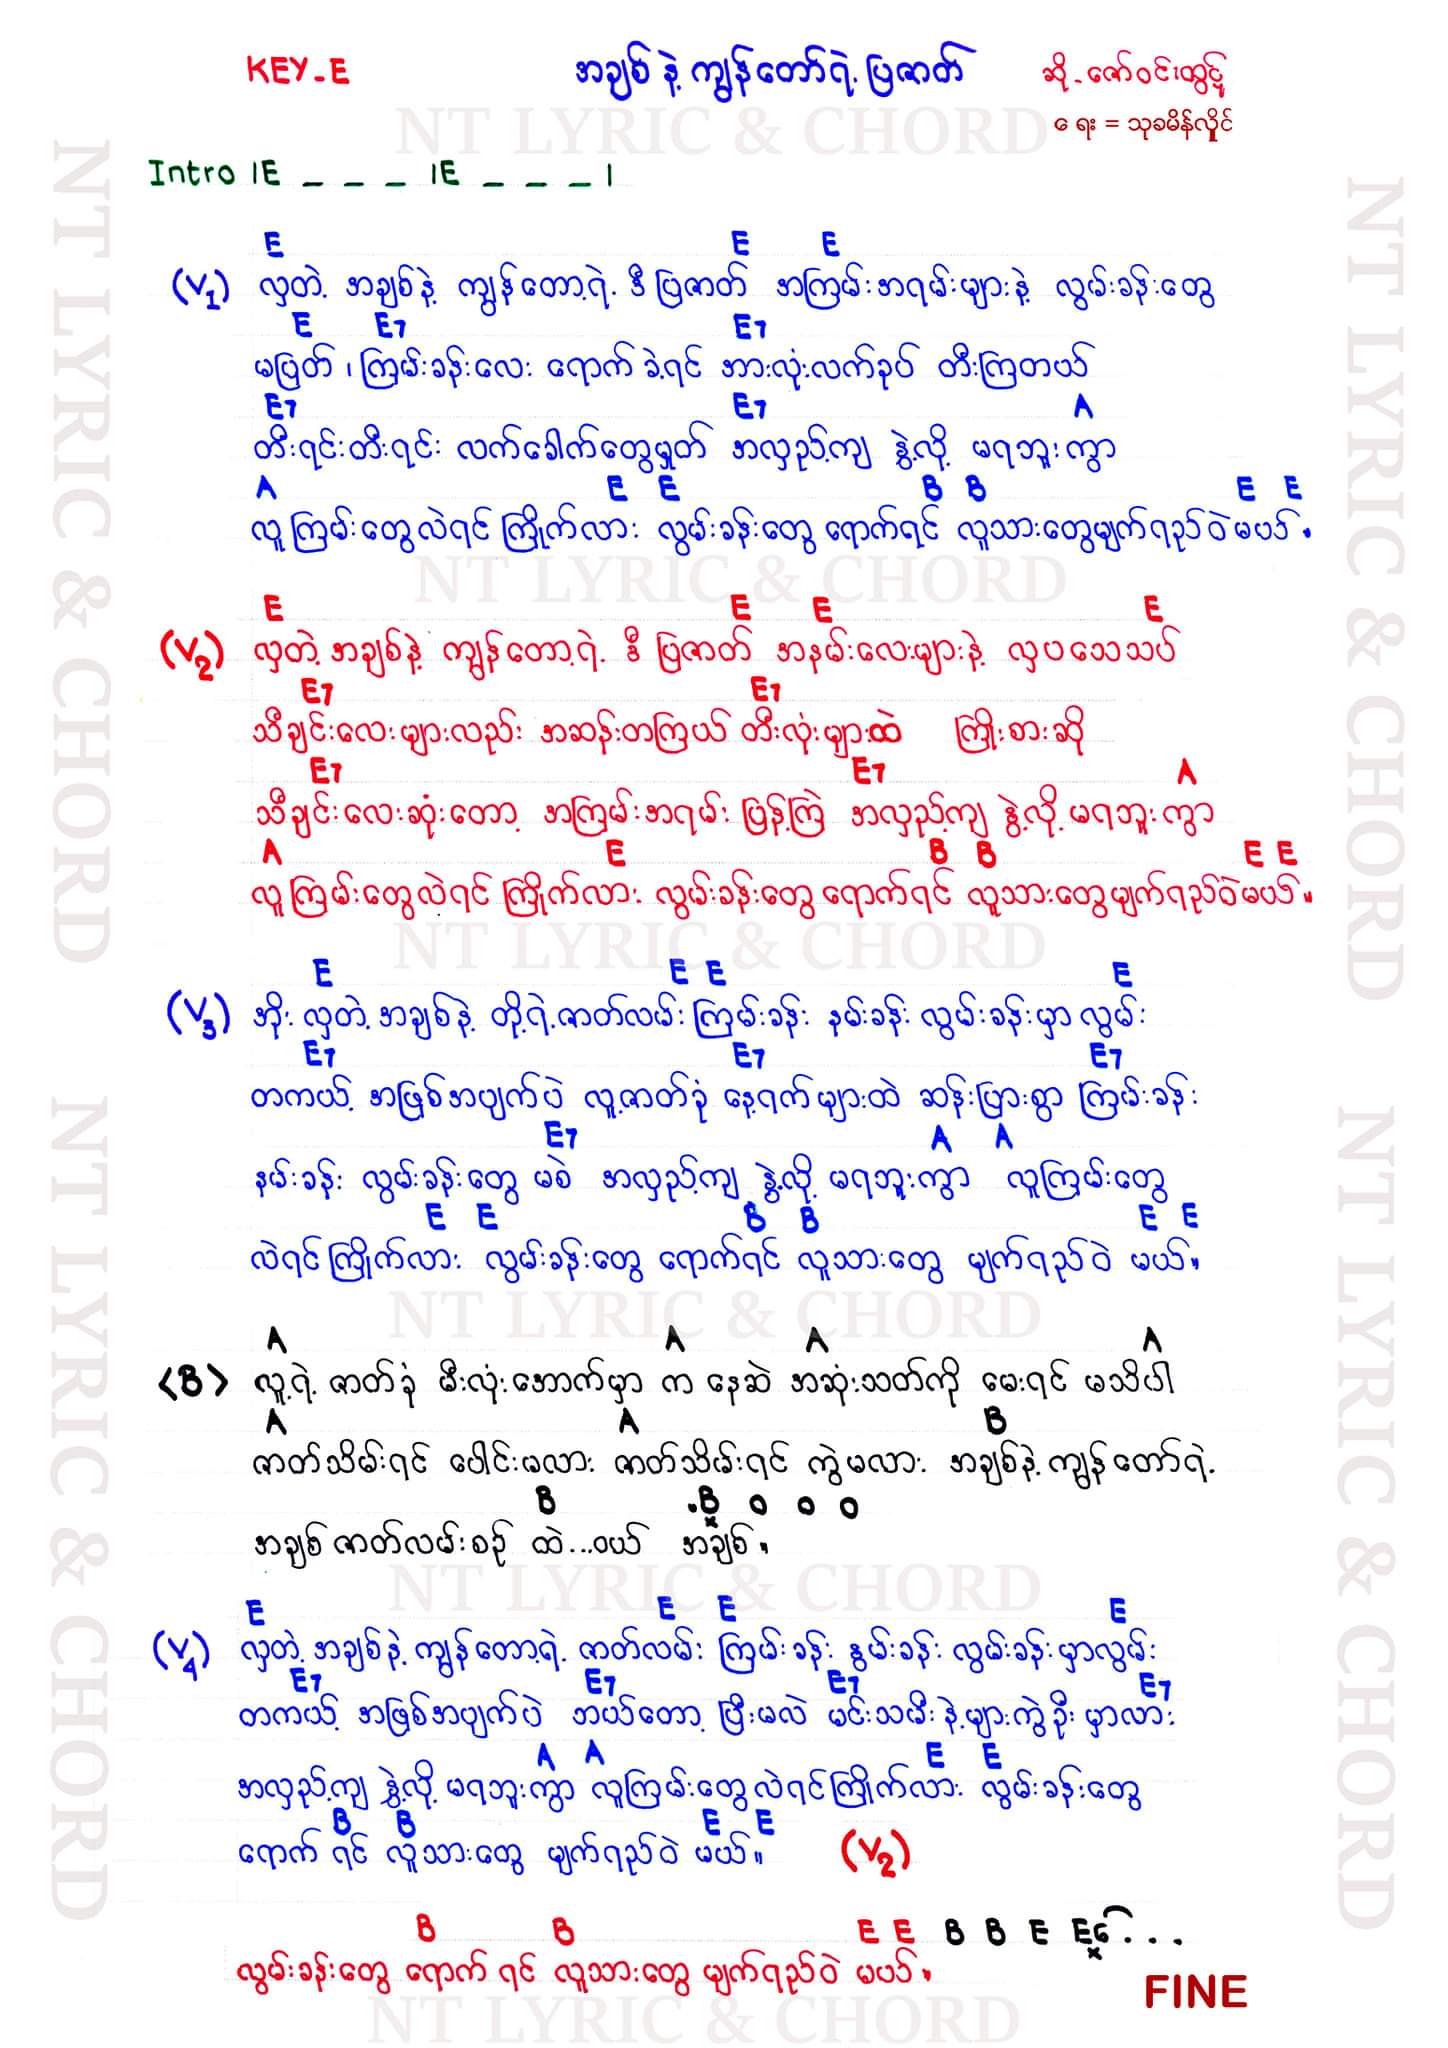 KEY-E
အချစ်နဲ့ ကျွန်တော်ရဲ့ ပြဇာတ်
ဆို - ဇော်ဝင်းထွဋ်
ရေး = သုခမိန်လှိုင်
NT LYRIC & CHORD
Intro |E _ _ _ |E _ _ _ |
E E E
(V1) လှတဲ့ အချစ်နဲ့ ကျွန်တော့ရဲ့ ဒီပြဇာတ် အကြမ်းအရမ်းများနဲ့ လွမ်းခန်းတွေ
E E7 E7
မပြတ်၊ ကြမ်းခန်းလေး ရောက်ခဲ့ရင် အားလုံးလက်ခုပ် တီးကြတယ်
E7 E7 A
တီးရင်းတီးရင်း လက်ခေါက်တွေမှုတ် အလှည့်ကျ နွဲ့လို့ မရဘူးကွာ
A E E B B E E
လူကြမ်းတွေလဲရင် ကြိုက်လား လွမ်းခန်းတွေ ရောက်ရင် လူသားတွေမျက်ရည်ဝဲမယ်။
NT LYRIC & CHORD
E E E E
(V2) လှတဲ့ အချစ်နဲ့ ကျွန်တော့ရဲ့ ဒီ ပြဇာတ် အနမ်းလေးများနဲ့ လှပသေသပ်
E7 E7
သီချင်းလေးများလည်း အဆန်းတကြယ် တီးလုံးများထဲ ကြိုးစားဆို
E7 E7 A
သီချင်းလေးဆုံးတော့ အကြမ်းအရမ်း ပြန့်ကြဲ အလှည့်ကျ နွဲ့လို့ မရဘူးကွာ
A E B B E E
လူကြမ်းတွေလဲရင် ကြိုက်လား လွမ်းခန်းတွေ ရောက်ရင် လူသားတွေမျက်ရည်ဝဲမယ်။
NT LYRIC & CHORD
E E E E
(V3) အိုး လှတဲ့ အချစ်နဲ့ တို့ရဲ့ဇာတ်လမ်း ကြမ်းခန်း နမ်းခန်း လွမ်းခန်းမှာ လွမ်း
E7 E7 E7
တကယ့် အဖြစ်အပျက်ပဲ လူ့ဇာတ်ခုံ နေ့ရက်များထဲ ဆန်းပြားစွာ ကြမ်းခန်း
E7 A A
နမ်းခန်း လွမ်းခန်းတွေ မစဲ အလှည့်ကျ နွဲ့လို့ မရဘူးကွာ လူကြမ်းတွေ
E E B B E E
လဲရင်ကြိုက်လား လွမ်းခန်းတွေ ရောက်ရင် လူသားတွေ မျက်ရည်ဝဲ မယ်။
NT LYRIC & CHORD
A A A A
<B> လူ့ရဲ့ ဇာတ်ခုံ မီးလုံးအောက်မှာ က နေဆဲ အဆုံးသတ်ကို မေးရင် မသိပါ
A A B
ဇာတ်သိမ်းရင် ပေါင်းမလား ဇာတ်သိမ်းရင် ကွဲမလား အချစ်နဲ့ ကျွန်တော်ရဲ့
B .B o o o
အချစ်ဇာတ်လမ်းစဉ် ထဲ...ဝယ် အချစ်။
NT LYRIC & CHORD
E E E E
(V4) လှတဲ့ အချစ်နဲ့ ကျွန်တော့ရဲ့ ဇာတ်လမ်း ကြမ်းခန်း နွမ်းခန်း လွမ်းခန်းမှာလွမ်း
E7 E7 E7 E7
တကယ့် အဖြစ်အပျက်ပဲ ဘယ်တော့ ပြီးမလဲ မင်းသမီးနဲ့များကွဲဦး မှာလား
A A E E
အလှည့်ကျ နွဲ့လို့ မရဘူးကွာ လူကြမ်းတွေလဲရင်ကြိုက်လား လွမ်းခန်းတွေ
B B E E
ရောက်ရင် လူသားတွေ မျက်ရည်ဝဲ မယ်။ (V2)
B B E E B B E E ...
လွမ်းခန်းတွေ ရောက်ရင် လူသားတွေ မျက်ရည်ဝဲ မယ်။
FINE
NT LYRIC & CHORD
NT LYRIC & CHORD
NT LYRIC & CHORD
NT LYRIC & CHORD
NT LYRIC & CHORD